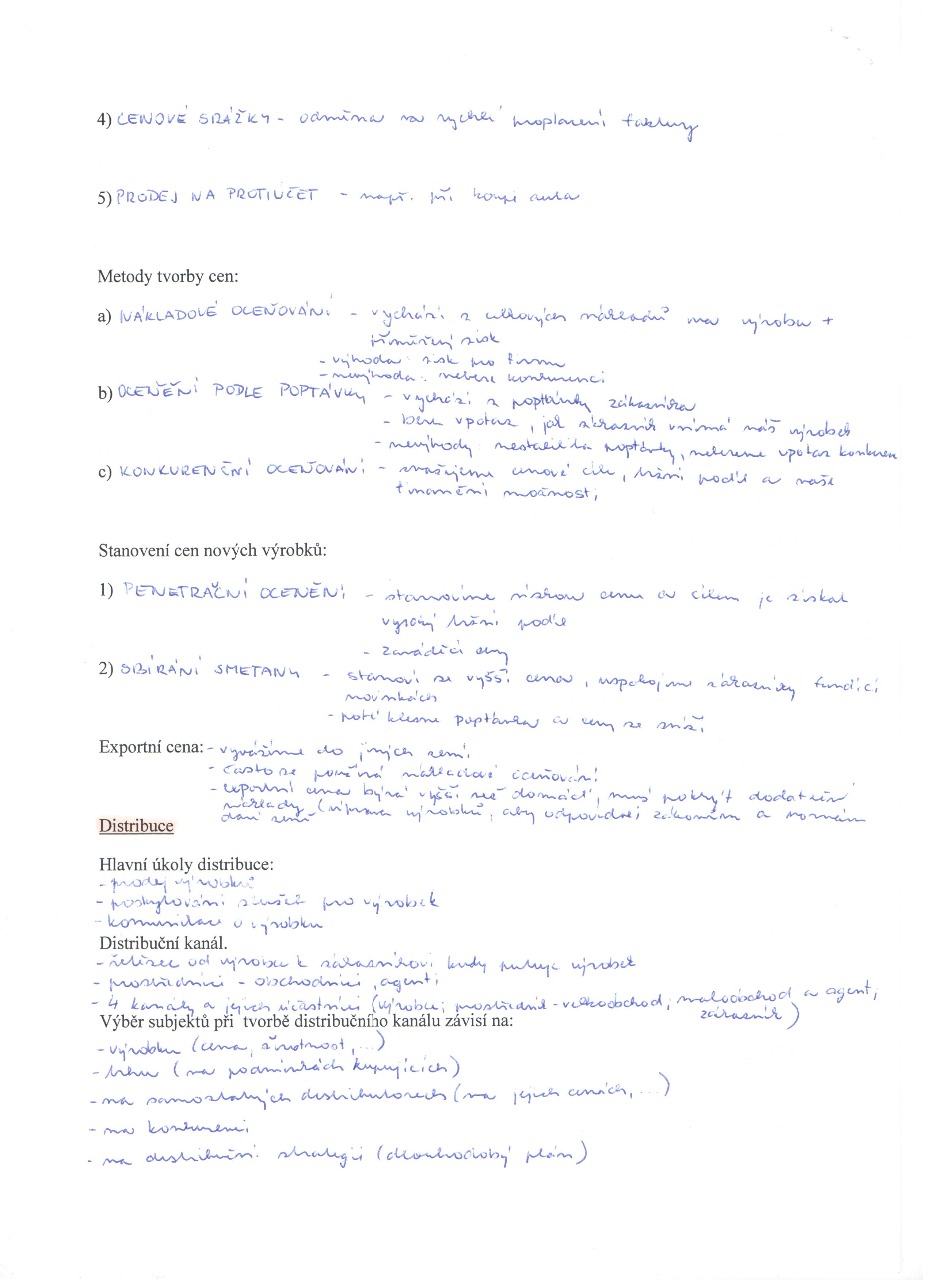 4) CENOVÉ SRÁŽKY - odměna za rychlé proplacení faktury
5) PRODEJ NA PROTIÚČET - např. při koupi auta
Metody tvorby cen:
a) NÁKLADOVÉ OCEŇOVÁNÍ - vychází z celkových nákladů na výrobu +
přiměřený zisk
- výhoda: zisk pro firmu
- nevýhoda: nebere konkurenci
b) OCENĚNÍ PODLE POPTÁVKY - vychází z poptávky zákazníka
- bere v potaz, jak zákazník vnímá náš výrobek
- nevýhody: nestabilita poptávky, nebereme v potaz konkuren
c) KONKURENČNÍ OCEŇOVÁNÍ - cenové cíle, tržní podíl a naše
finanční možnosti
Stanovení cen nových výrobků:
1) PENETRAČNÍ OCENĚNÍ - stanovíme nízkou cenu a cílem je získat
vysoký tržní podíl
- zaváděcí ceny
2) SBÍRÁNÍ SMETANY - stanoví se vyšší cena, uspokojíme zákazníky
novinkách
- poté klesne poptávka a ceny se sníží
Exportní cena: - vyvážíme do jiných zemí
- často se používá nákladové oceňování
- exportní cena bývá vyšší než domácí, musí pokrýt dodatečné
náklady (úprava výrobků, aby odpovídaly zákonům a normám
dané země
Distribuce
Hlavní úkoly distribuce:
- prodej výrobků
- poskytování služeb pro výrobek
- komunikace o výrobku
Distribuční kanál.
- řetězec od výrobce k zákazníkovi kudy putuje výrobek
- prostředníci - obchodníci, agenti
- 4 kanály a jejich účastníci (výrobce; prostředník - velkoobchod, maloobchod a agent,
zákazník)
Výběr subjektů při tvorbě distribučního kanálu závisí na:
- výrobku (cena, životnost, ...)
- trhu (na podmínkách kupujících)
- na samostatných distributorech (na jejich cenách, ...)
- na konkurenci
- na distribuční strategii (dlouhodobý plán)